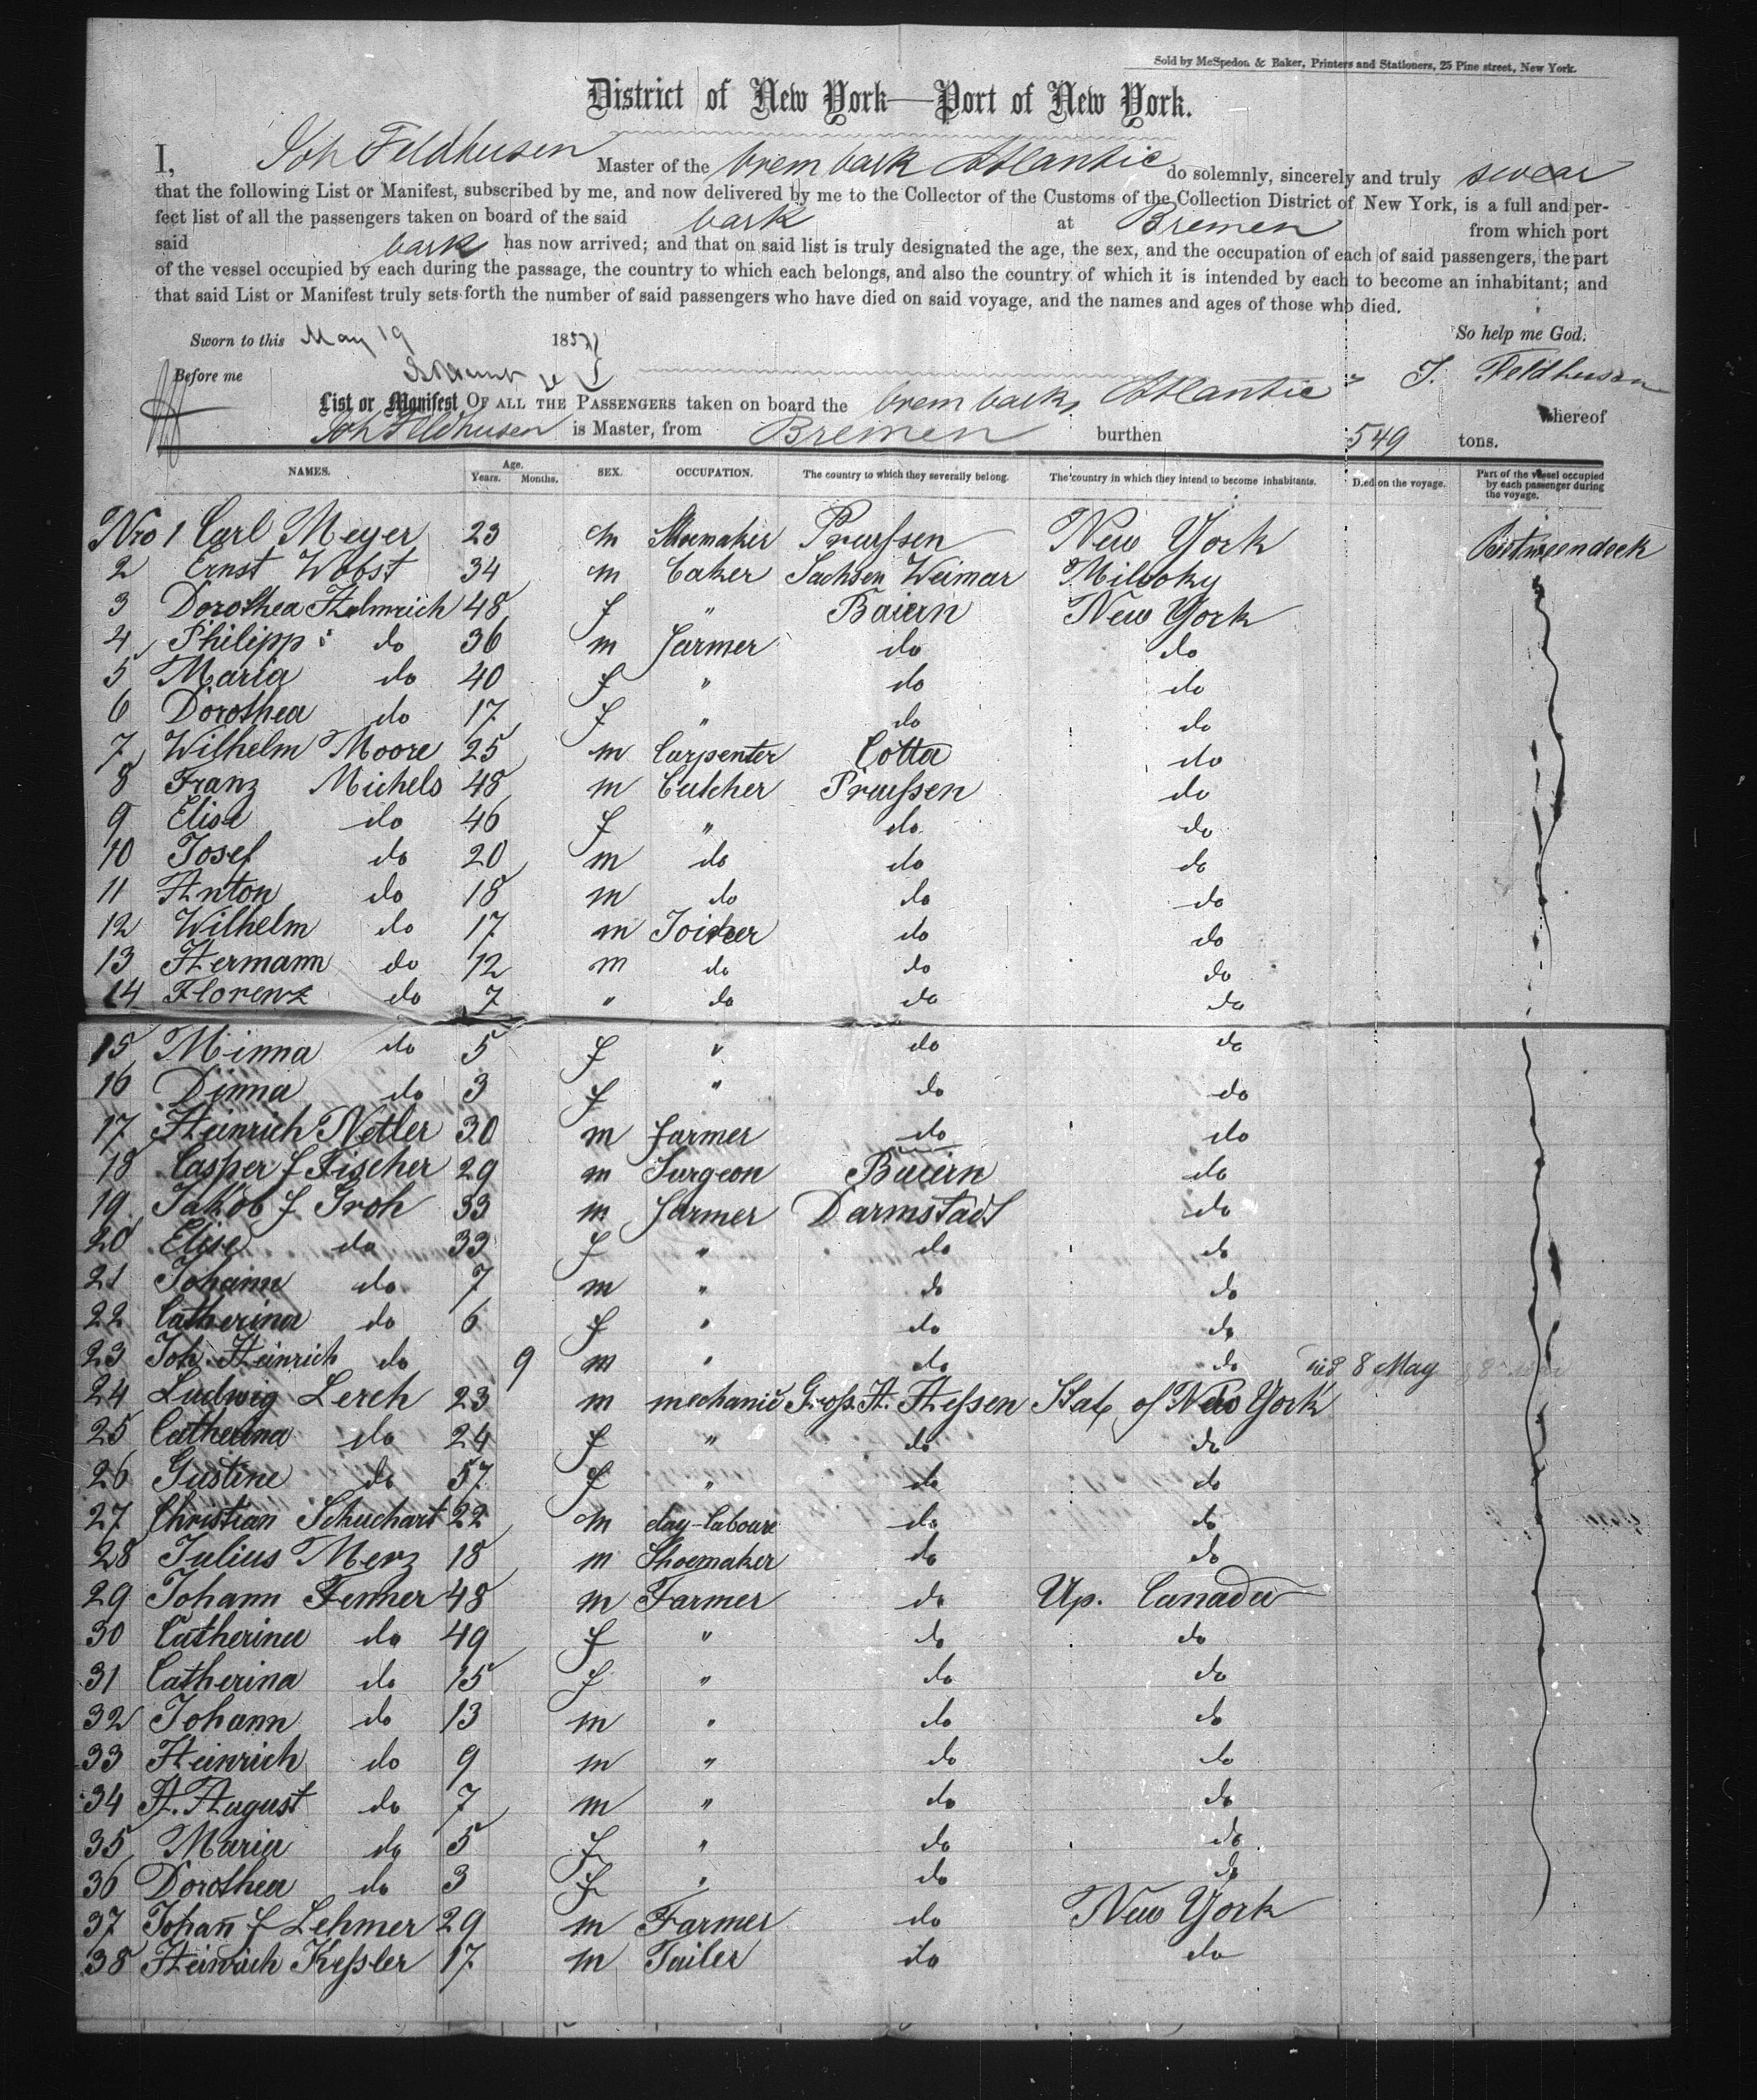 Sold by McSpedon & Baker, Printers and Stationers, 25 Pine street, New York.
District of New York—Port of New York.
I, Joh Feldhusen Master of the brem bark Atlantic do solemnly, sincerely and truly swear
that the following List or Manifest, subscribed by me, and now delivered by me to the Collector of the Customs of the Collection District of New York, is a full and per-
fect list of all the passengers taken on board of the said bark at Bremen from which port
said bark has now arrived; and that on said list is truly designated the age, the sex, and the occupation of each of said passengers, the part
of the vessel occupied by each during the passage, the country to which each belongs, and also the country of which it is intended by each to become an inhabitant; and
that said List or Manifest truly sets forth the number of said passengers who have died on said voyage, and the names and ages of those who died.
Sworn to this May 19 1857 So help me God.
Before me J. Feldhusen
List or Manifest OF ALL THE PASSENGERS taken on board the brem bark, Atlantic whereof
Joh Feldhusen is Master, from Bremen burthen 549 tons.
NAMES. Age. Years. Months. SEX. OCCUPATION. The country to which they severally belong. The country in which they intend to become inhabitants. Died on the voyage. Part of the vessel occupied by each passenger during the voyage.
Nro 1 Carl Meyer 23 m Shoemaker Preussen New York Betweendeck
2 Ernst Wobst 34 m baker Sachsen Weimar Milwoky
3 Dorothea Helmrich 48 f " Baiern New York
4 Philipp do 36 m farmer do do
5 Maria do 40 f " do do
6 Dorothea do 17 f " do do
7 Wilhelm Moore 25 m Carpenter Cotta do
8 Franz Michels 48 m Butcher Preussen do
9 Elise do 46 f " do do
10 Josef do 20 m do do do
11 Anton do 18 m do do do
12 Wilhelm do 17 m Joiner do do
13 Hermann do 12 m do do do
14 Florenz do 7 " do do do
15 Minna do 5 f " do do
16 Dinna do 3 f " do do
17 Heinrich Netler 30 m farmer do do
18 Casper J Fischer 29 m Surgeon Baiern do
19 Jakob J Groh 33 m farmer Darmstadt do
20 Elise do 33 f " do do
21 Johann do 7 m " do do
22 Catherina do 6 f " do do
23 Joh. Heinrich do 9 m " do do died 8 May
24 Ludwig Lerch 23 m mechanic Gross. H. Hessen State of New York
25 Catherina do 24 f " do do
26 Justine do 57 f " do do
27 Christian Schuchart 22 m day-laboure do do
28 Julius Merz 18 m Shoemaker do do
29 Johann Fenner 48 m Farmer do Up. Canada
30 Catherina do 49 f " do do
31 Catherina do 15 f " do do
32 Johann do 13 m " do do
33 Heinrich do 9 m " do do
34 H. August do 7 m " do do
35 Maria do 5 f " do do
36 Dorothea do 3 f " do do
37 Johañ J Lehmer 29 m Farmer do New York
38 Heinrich Kessler 17 m Tailer do do